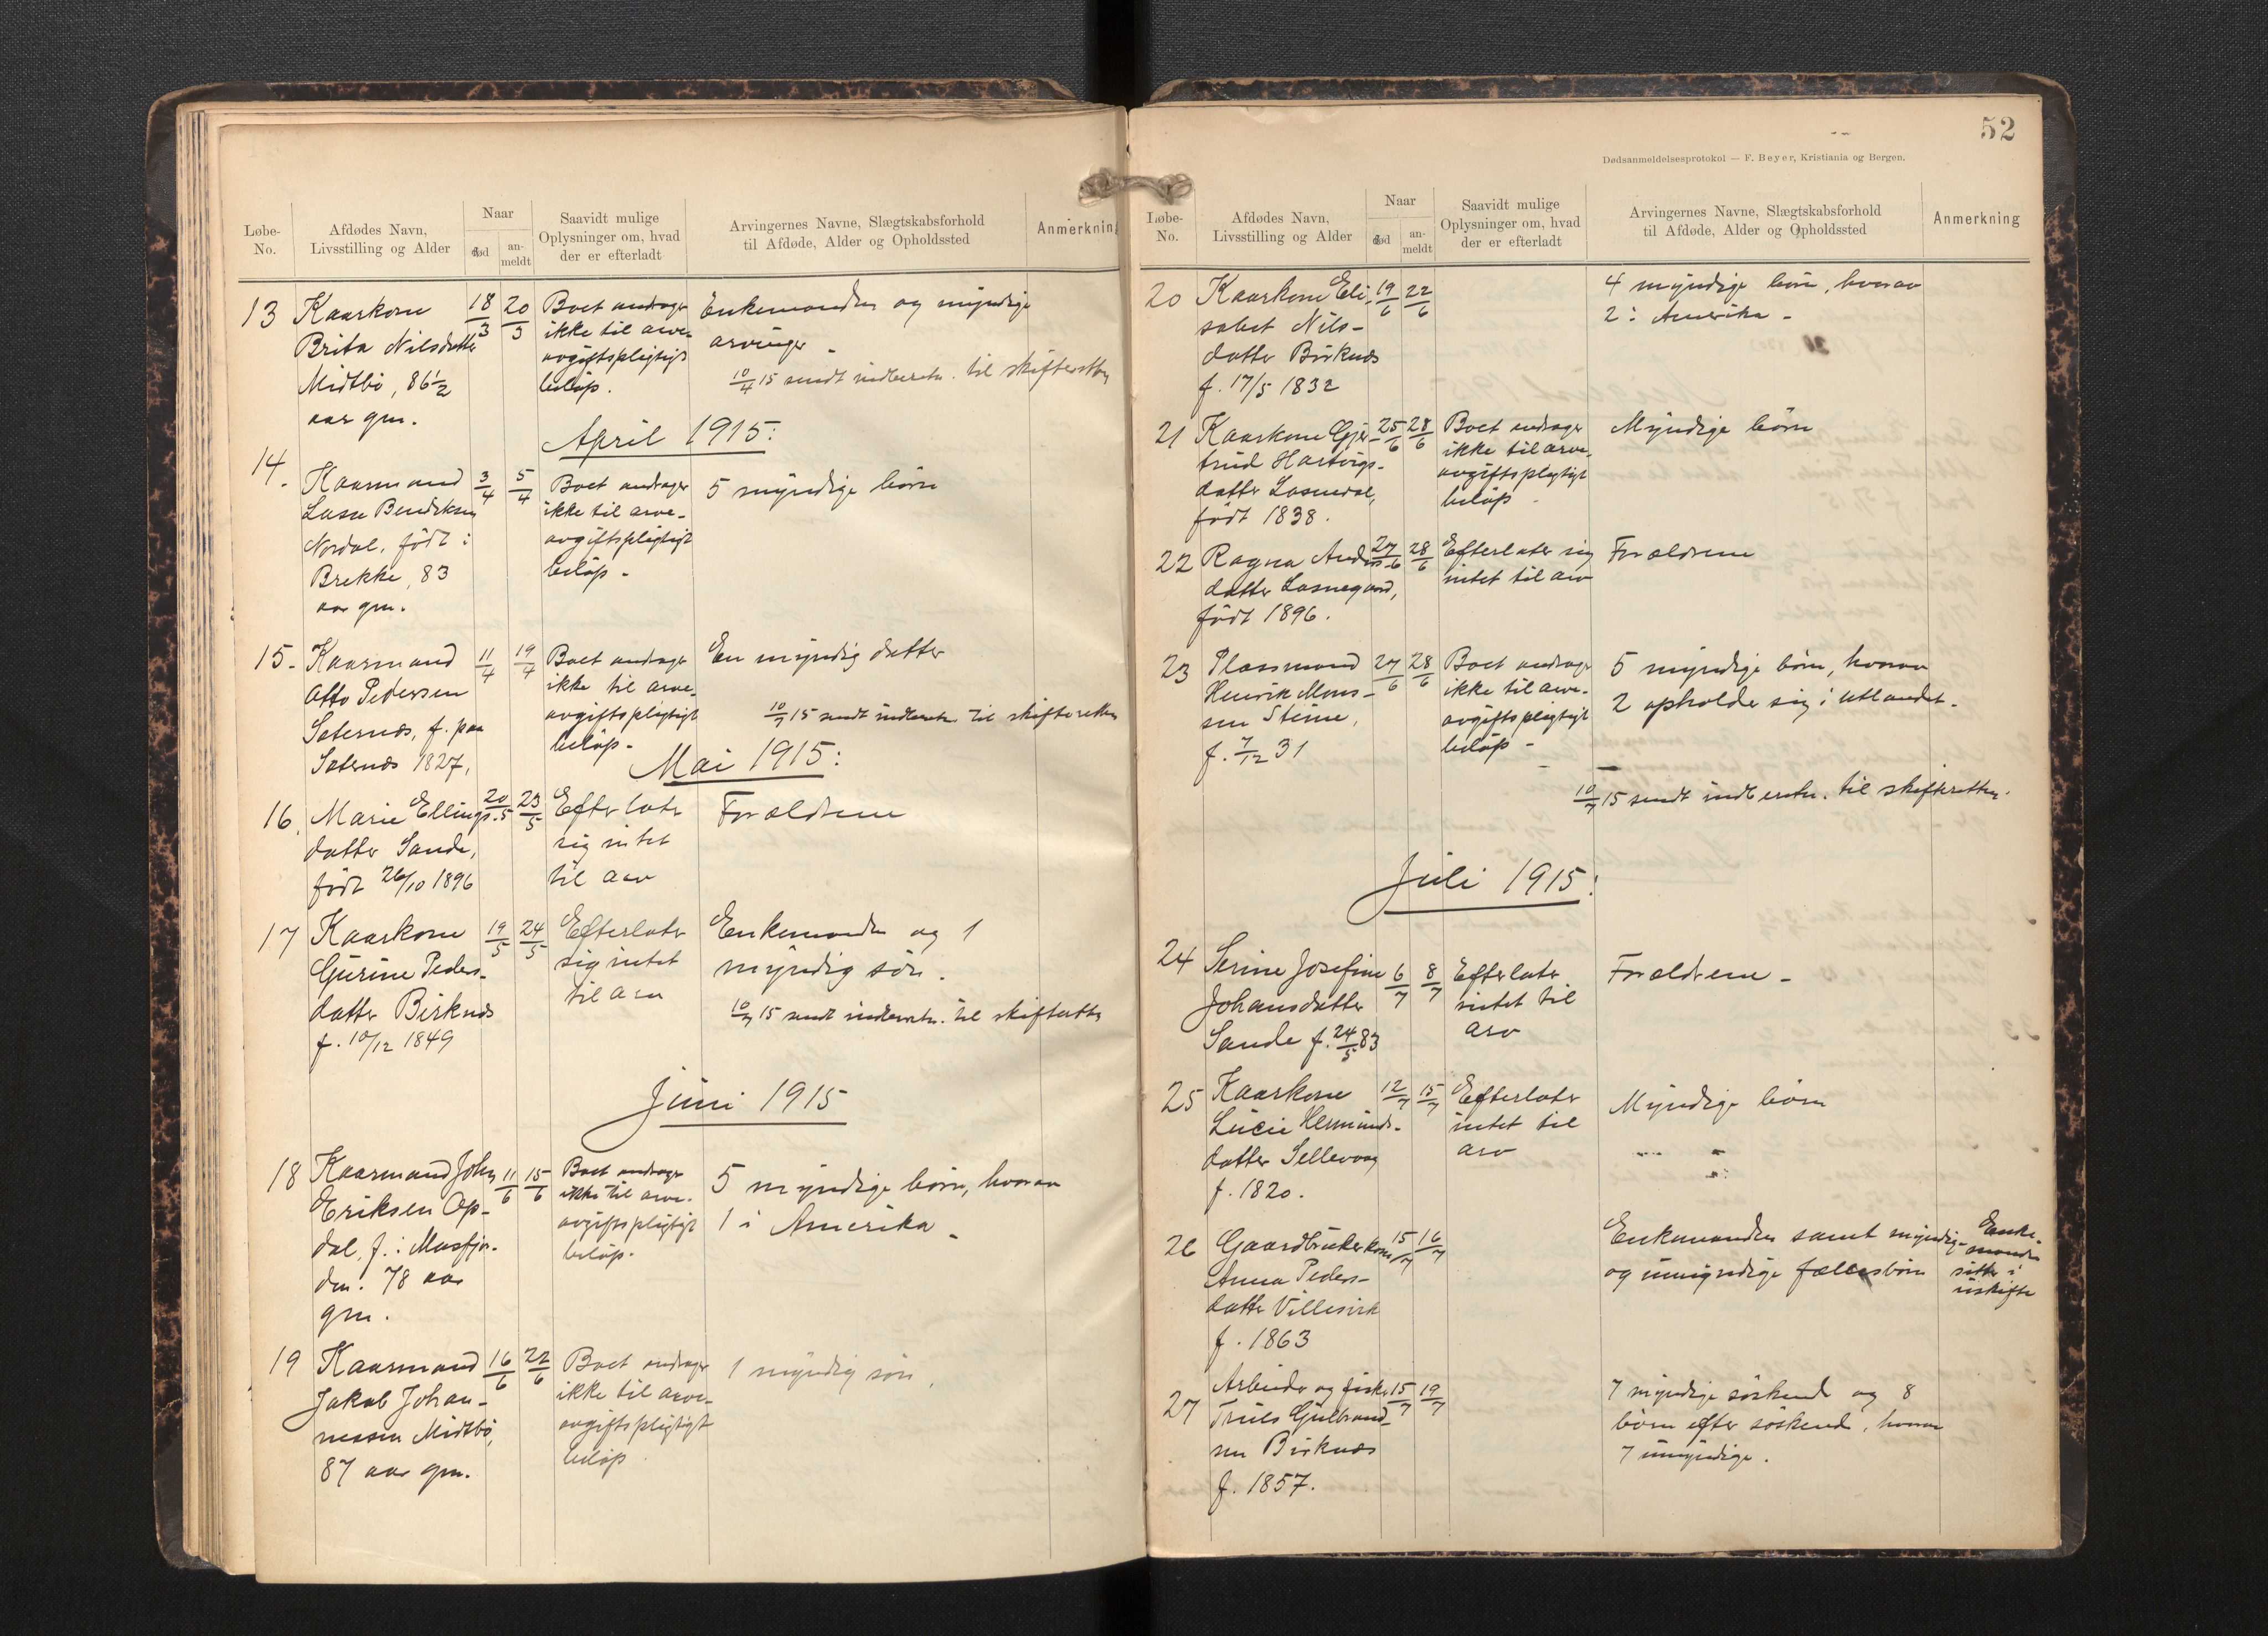 Løbe-
No.
Afdødes Navn,
Livsstilling og Alder
Naar
død
an-
meldt
Saavidt mulige
Oplysninger om, hvad
der er efterladt
Arvingernes Navne, Slægtskabsforhold
til Afdøde, Alder og Opholdssted
Anmerkning
13 Kaarkone
Brita Nilsdatter
Midtbö, 86 1/2
aar gm.
18/3
20/3
Boet andrager
ikke til arve-
avgiftspligtigt
belöp.
Enkemanden og myndige
arvinger
10/4 15 sendt indberetn. til skifteretten
April 1915:
14. Kaarmand
Lasse Bendiksen
Nordal, födt i
Brekke, 83
aar gm.
3/4
5/4
Boet andrager
ikke til arve-
avgiftspligtigt
belöp -
5 myndige börn
15. Kaarmand
Otto Pedersen
Saternæs, f. paa
Saternæs 1827,
11/4
19/4
Boet andrager
ikke til arve-
avgiftspligtigt
belöp -
En myndig datter
10/7 15 sendt indberetn. til skifteretten
Mai 1915:
16. Marie Ellings-
datter Sande,
födt 26/10 1896
20/5
23/5
Efterlater
sig intet
til arv
Forældrene
17 Kaarkone
Gurine Peders-
datter Birknæs
f. 10/12 1849
19/5
24/5
Efterlater
sig intet
til arv
Enkemanden og 1
myndig sön.
10/7 15 sendt indberetn. til skifteretten
Juni 1915
18 Kaarmand John
Eriksen Op-
dal, f. i Masfjor-
den. 78 aar
gm.
11/6
15/6
Boet andrager
ikke til arve-
avgiftspligtigt
belöp.
5 myndige börn, hvorav
1 i Amerika -
19 Kaarmand
Jakob Johan-
nessen Midtbö,
87 aar gm.
16/6
22/6
Boet andrager
ikke til arve-
avgiftspligtigt
belöp
1 myndig sön.
52
Dødsanmeldelsesprotokol — F. Beyer, Kristiania og Bergen.
Løbe-
No.
Afdødes Navn,
Livsstilling og Alder
Naar
død
an-
meldt
Saavidt mulige
Oplysninger om, hvad
der er efterladt
Arvingernes Navne, Slægtskabsforhold
til Afdøde, Alder og Opholdssted
Anmerkning
20 Kaarkone Eli-
sabet Nils-
datter Birknæs
f. 17/5 1832
19/6
22/6
4 myndige börn, hvorav
2 i Amerika -
21 Kaarkone Gjer-
trud Hartvigs-
datter Losnedal,
födt 1838.
25/6
28/6
Boet andrager
ikke til arve-
avgiftspligtigt
belöp -
Myndige börn
22 Ragna Anders-
datter Losnegaard,
födt 1896.
27/6
28/6
Efterlater sig
intet til arv
Forældrene
23 Plassmand
Henrik Mons-
sen Steine,
f. 7/12 31
27/6
28/6
Boet andrager
ikke til arve-
avgiftspligtigt
belöp -
5 myndige börn, hvorav
2 opholder sig i utlandet -
10/7 15 sendt indberetn. til skifteretten.
Juli 1915:
24 Serine Josefine
Johansdatter
Sande f. 24/5 83
6/7
8/7
Efterlater
intet til
arv
Forældrene -
25 Kaarkone
Lucie Hermunds-
datter Sellevaag
f. 1820.
12/7
15/7
Efterlater
intet til
arv
Myndige börn
26 Gaardbrukerkone
Anna Peders-
datter
f. 1863
15/7
16/7
Enkemanden samt myndige
og umyndige fællesbörn
Enke-
manden
sitter i
uskifte
27 Arbeider og fisker
Truls Gulbrand-
sen Birknæs
f. 1857.
15/7
19/7
7 myndige söskend og 8
börn efter söskend, hvorav
7 umyndige.